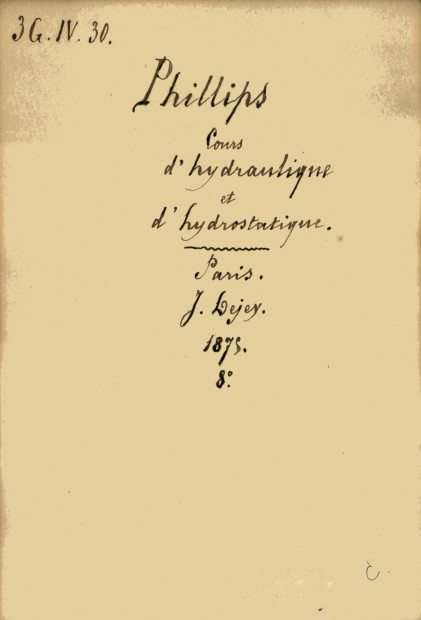 3 G. IV. 30.
Phillips
Cours
d'hydraulique
et
d'hydrostatique.
Paris.
J. Dejey.
1875.
8°.